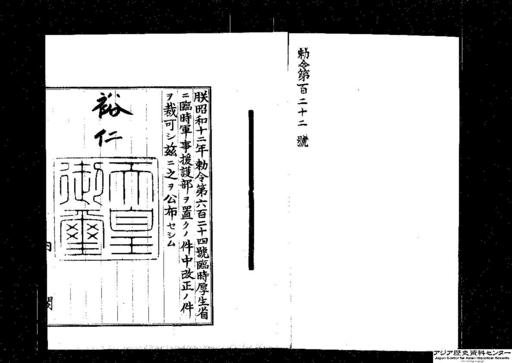 勅令第百二十二號
朕昭和十二年勅令第六百二十四號臨時厚生省
ニ臨時軍事援護部ヲ置クノ件中改正ノ件
ヲ裁可シ茲ニ之ヲ公布セシム
裕仁
天皇
御璽
内
閣
アジア歴史資料センター
Japan Center for Asian Historical Records